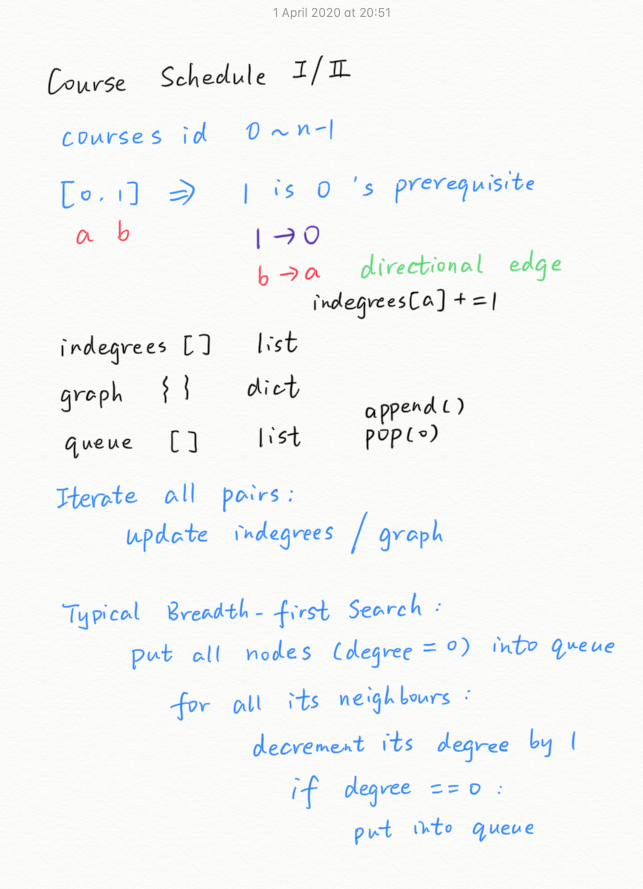 1 April 2020 at 20:51
Course Schedule I/II
courses id 0 ~ n-1
[0, 1] ⇒ 1 is 0 's prerequisite
a b 1 → 0
b → a directional edge
indegrees[a] += 1
indegrees [] list
graph { } dict
append()
queue [] list pop(0)
Iterate all pairs:
update indegrees / graph
Typical Breadth-first Search:
put all nodes (degree = 0) into queue
for all its neighbours:
decrement its degree by 1
if degree == 0:
put into queue